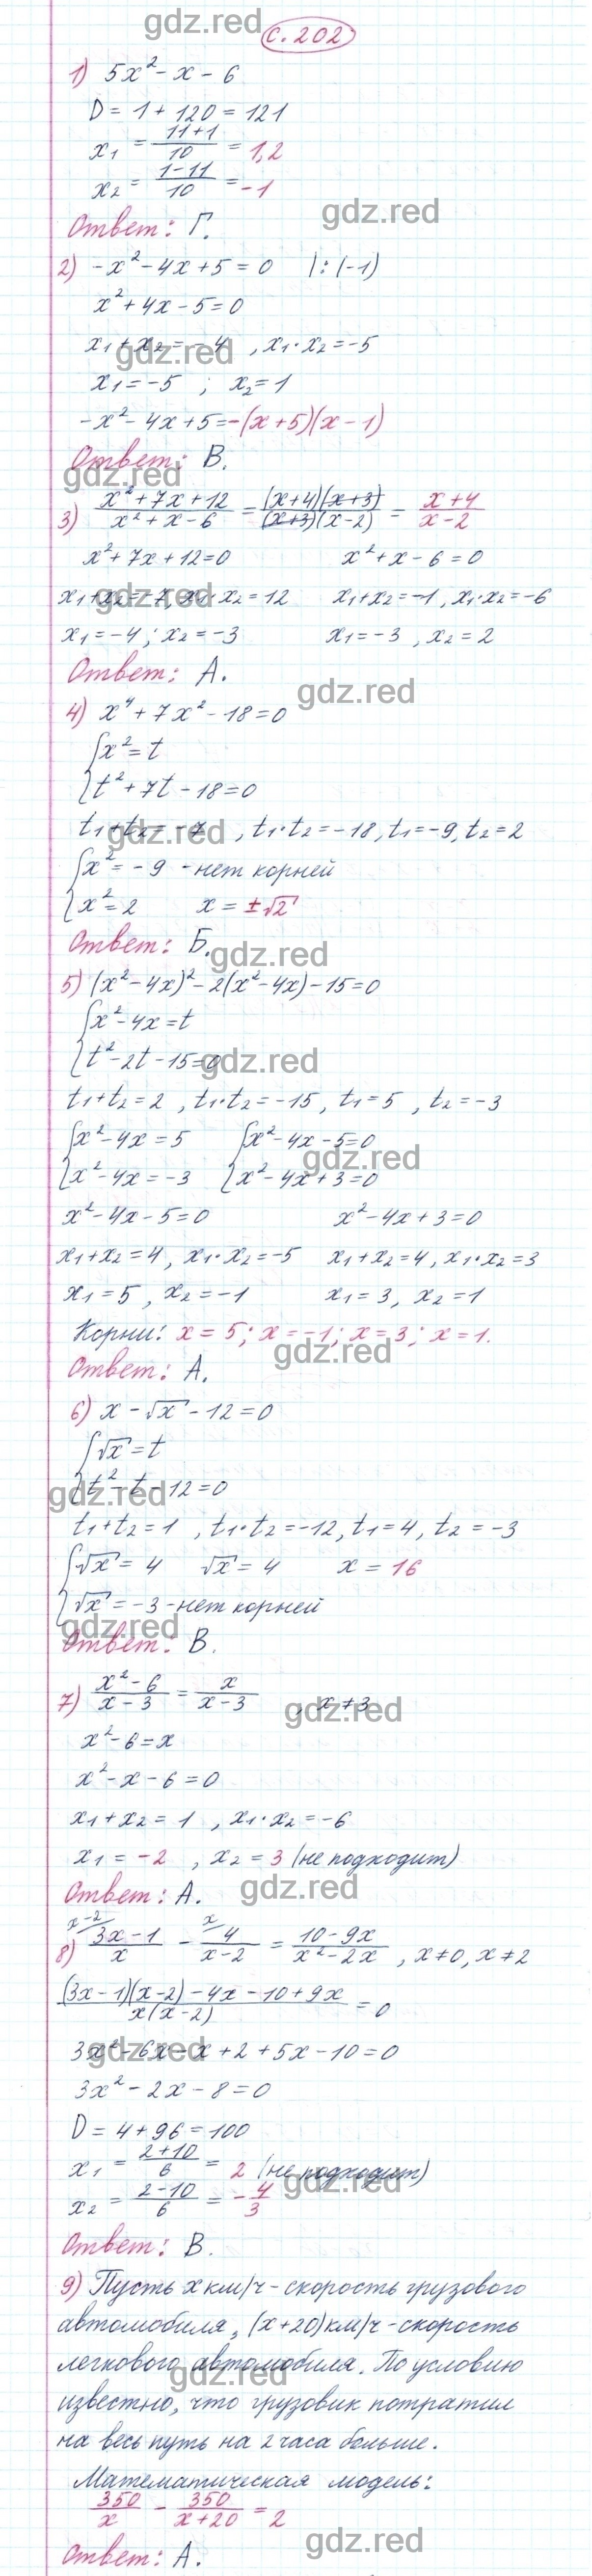 gdz.red
с. 202
1) 5x² - x - 6
D = 1 + 120 = 121
x₁ = (11+1)/10 = 1,2
x₂ = (1-11)/10 = -1
gdz.red
Ответ: Г.
2) -x² - 4x + 5 = 0 |:(-1)
x² + 4x - 5 = 0
x₁ + x₂ = -4, x₁·x₂ = -5
gdz.red
x₁ = -5 ; x₂ = 1
-x² - 4x + 5 = -(x+5)(x-1)
Ответ: В.
gdz.red
3) (x²+7x+12)/(x²+x-6) = (x+4)(x+3)/(x+3)(x-2) = (x+4)/(x-2)
x² + 7x + 12 = 0 x² + x - 6 = 0
x₁+x₂ = -7, x₁·x₂ = 12 x₁+x₂ = -1, x₁·x₂ = -6
gdz.red
x₁ = -4; x₂ = -3 x₁ = -3, x₂ = 2
Ответ: А.
gdz.red
4) x⁴ + 7x² - 18 = 0
{x² = t
{t² + 7t - 18 = 0
t₁+t₂ = -7, t₁·t₂ = -18, t₁ = -9, t₂ = 2
gdz.red
{x² = -9 - нет корней
{x² = 2 x = ±√2
Ответ: Б.
gdz.red
5) (x²-4x)² - 2(x²-4x) - 15 = 0
{x² - 4x = t
{t² - 2t - 15 = 0
gdz.red
t₁+t₂ = 2, t₁·t₂ = -15, t₁ = 5, t₂ = -3
{x² - 4x = 5 {x² - 4x - 5 = 0
gdz.red
{x² - 4x = -3 {x² - 4x + 3 = 0
x² - 4x - 5 = 0 x² - 4x + 3 = 0
x₁+x₂ = 4, x₁·x₂ = -5 x₁+x₂ = 4, x₁·x₂ = 3
x₁ = 5, x₂ = -1 x₁ = 3, x₂ = 1
Корни: x = 5; x = -1; x = 3; x = 1.
gdz.red
Ответ: А.
6) x - √x - 12 = 0
{√x = t
{t² - t - 12 = 0
gdz.red
t₁+t₂ = 1, t₁·t₂ = -12, t₁ = 4, t₂ = -3
{√x = 4 √x = 4 x = 16
{√x = -3 - нет корней
gdz.red
Ответ: В.
7) (x²-6)/(x-3) = x/(x-3), x ≠ 3
gdz.red
x² - 6 = x
x² - x - 6 = 0
x₁ + x₂ = 1, x₁·x₂ = -6
x₁ = -2, x₂ = 3 (не подходит)
Ответ: А.
gdz.red
8) ˣ⁻²/(3x-1)/x - ˣ/4/(x-2) = (10-9x)/(x²-2x), x≠0, x≠2
((3x-1)(x-2)-4x-10+9x)/x(x-2) = 0
3x² - 6x - x + 2 + 5x - 10 = 0
gdz.red
3x² - 2x - 8 = 0
D = 4 + 96 = 100
x₁ = (2+10)/6 = 2 (не подходит)
gdz.red
x₂ = (2-10)/6 = -4/3
Ответ: В.
9) Пусть x км/ч - скорость грузового
автомобиля, (x+20) км/ч - скорость
легкового автомобиля. По условию
gdz.red
известно, что грузовик потратил
на весь путь на 2 часа больше.
Математическая модель:
350/x - 350/(x+20) = 2
gdz.red
Ответ: А.